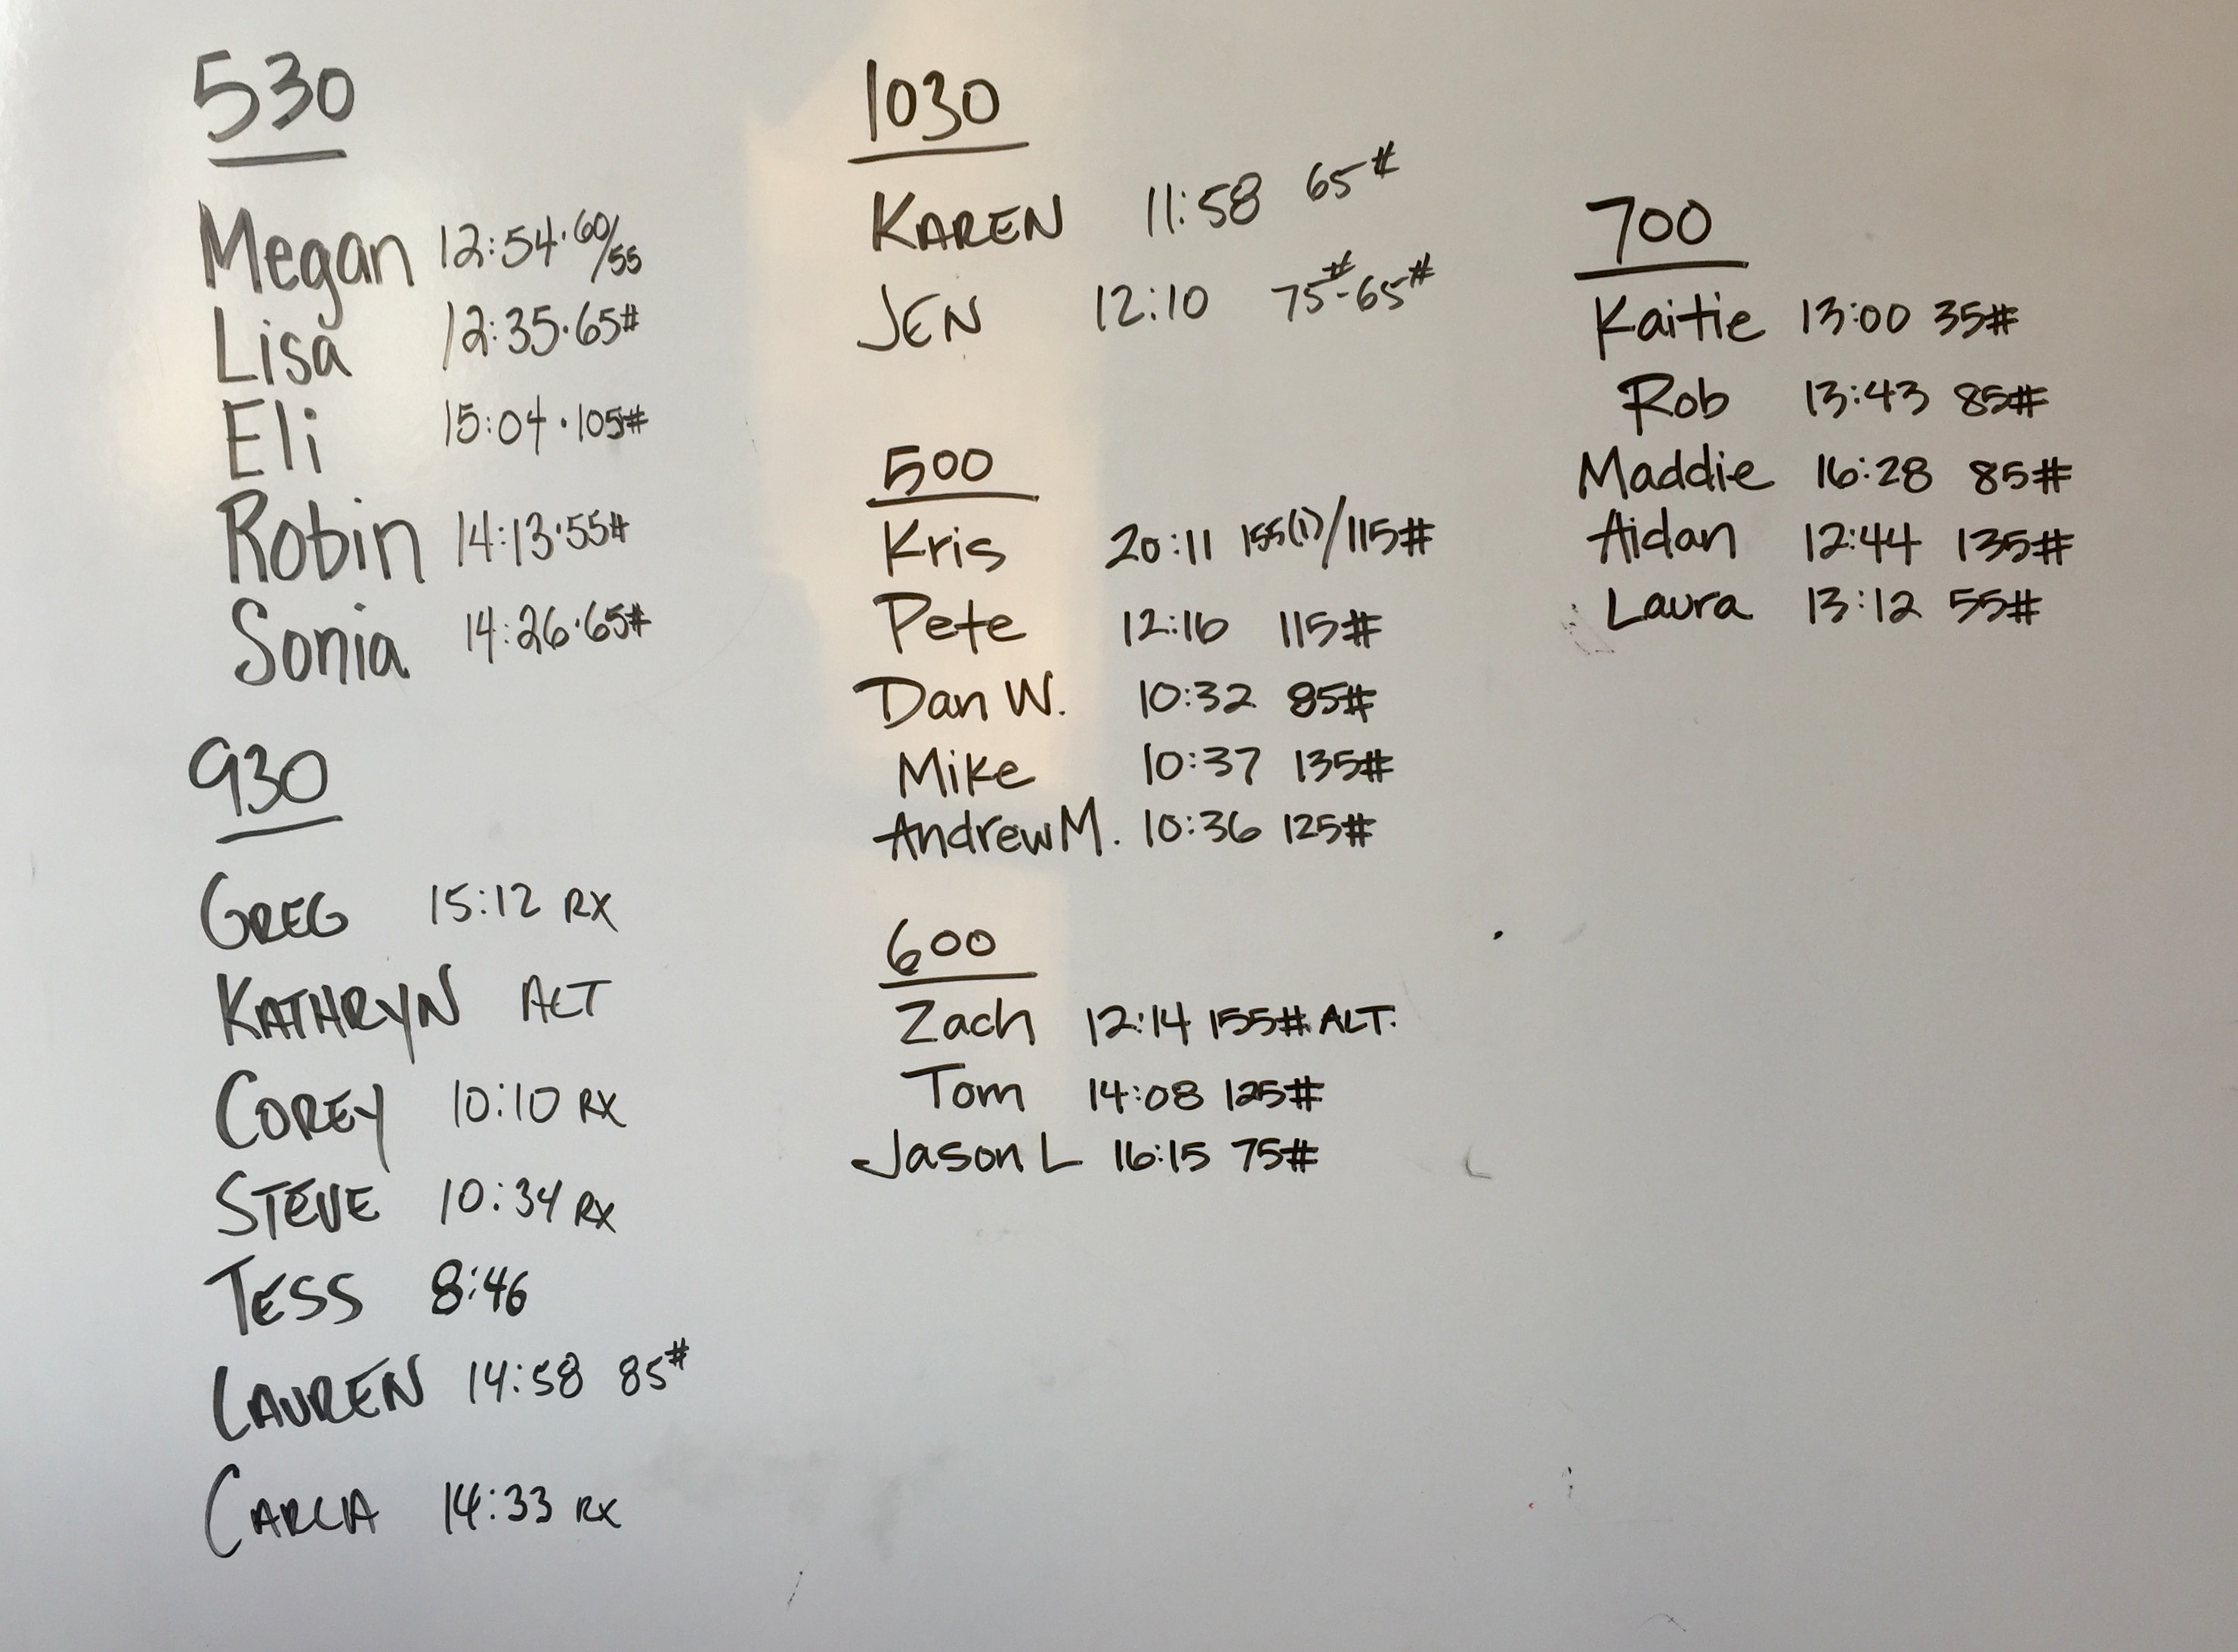 530
Megan 12:54·60/55
Lisa 12:35·65#
Eli 15:04·105#
Robin 14:13·55#
Sonia 14:26·65#
930
GREG 15:12 RX
KATHRYN ALT
COREY 10:10 RX
STEVE 10:34 RX
TESS 8:46
LAUREN 14:58 85#
CARLA 14:33 RX
1030
KAREN 11:58 65#
JEN 12:10 75#-65#
500
Kris 20:11 155(1)/115#
Pete 12:16 115#
Dan W. 10:32 85#
Mike 10:37 135#
Andrew M. 10:36 125#
600
Zach 12:14 155# ALT.
Tom 14:08 125#
Jason L 16:15 75#
700
Kaitie 13:00 35#
Rob 13:43 85#
Maddie 16:28 85#
Aidan 12:44 135#
Laura 13:12 55#